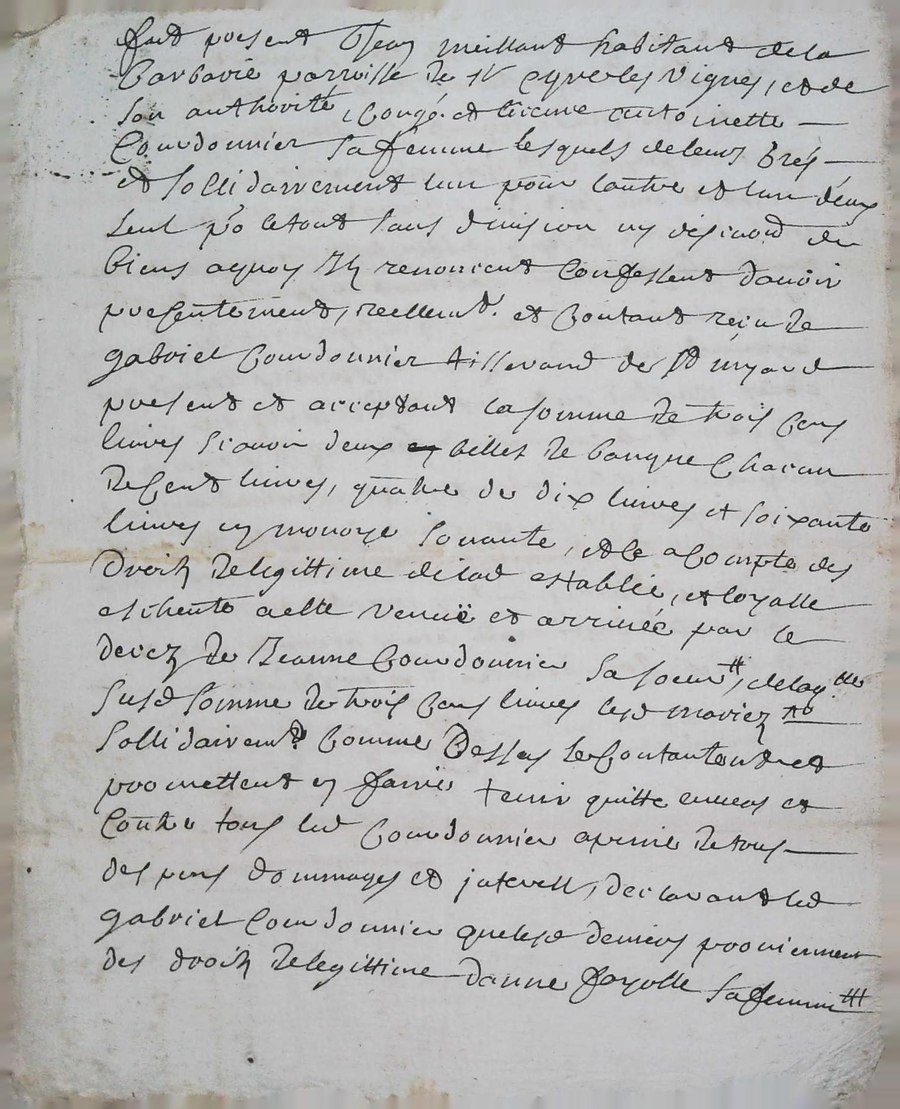 fut present Jean meillant habitant de la
Barbarie parroisse de St Cyr les Vignes, et de
Son authorité, Congé et licence antoinette
Courdonnier Sa femme lesquels de leurs grés
et Sollidairement lun pour lautre et lun deux
Seul po le tout Sans division ny discution de
biens a quoy Ils renoncent Confessent davoir
presentement, reellemt. et Contant reçu de
gabriel Courdonnier tisserand de St
present et acceptant la Somme de trois Cens
livres Scavoir deux billet de banque Chacun
de Cent livres, quatre de dix livres et Soixante
livres en monoye Sonante, et le a Compte des
Droits de legittime de lad establie, et loyalle
eschente a elle venuë et arrivée par le
decez de Jeanne Courdonnier Sa Soeur, de laqlle
Susd Somme de trois Cens livres lesd mariez
Sollidairemt Comme Dessus se Contantent et
promettent en faire tenir quitte envers et
Contre tous led Courdonnier a peine de tous
despens dommages et interest, declarant led
gabriel Courdonnier que lesd deniers proviennent
des droits de legittime danne fayolle Sa femme